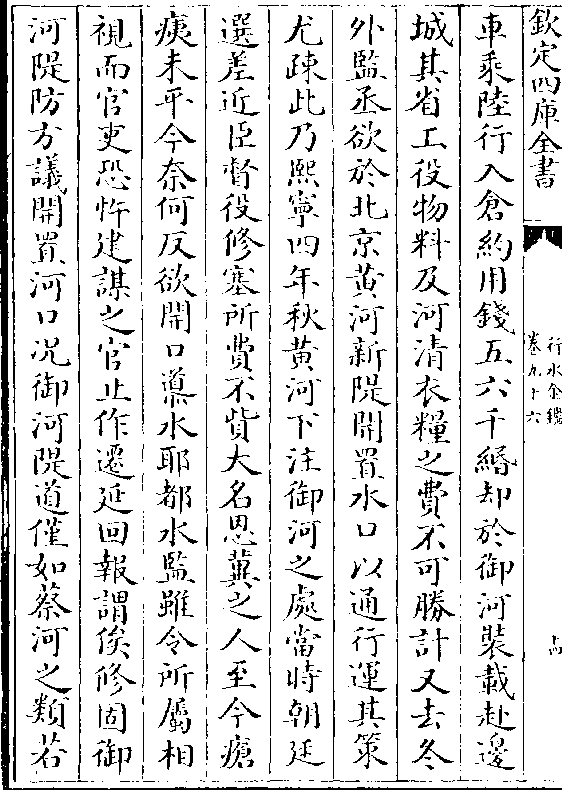 欽定四庫全書
行水金鑑
卷九十六
車乘陸行入倉約用錢五六千緡却於御河裝載赴邊
城其省工役物料及河清衣糧之費不可勝計又去冬
外監丞欲於北京黄河新隄開置水口以通行運其策
尤疎此乃熙寧四年秋黄河下注御河之處當時朝廷
選差近臣督役修塞所費不貲大名恩冀之人至今瘡
痍未平今奈何反欲開口導水耶都水監雖令所屬相
視而官吏恐忤建謀之官止作遷延回報謂俟修固御
河隄防方議開置河口况御河隄道僅如蔡河之類若